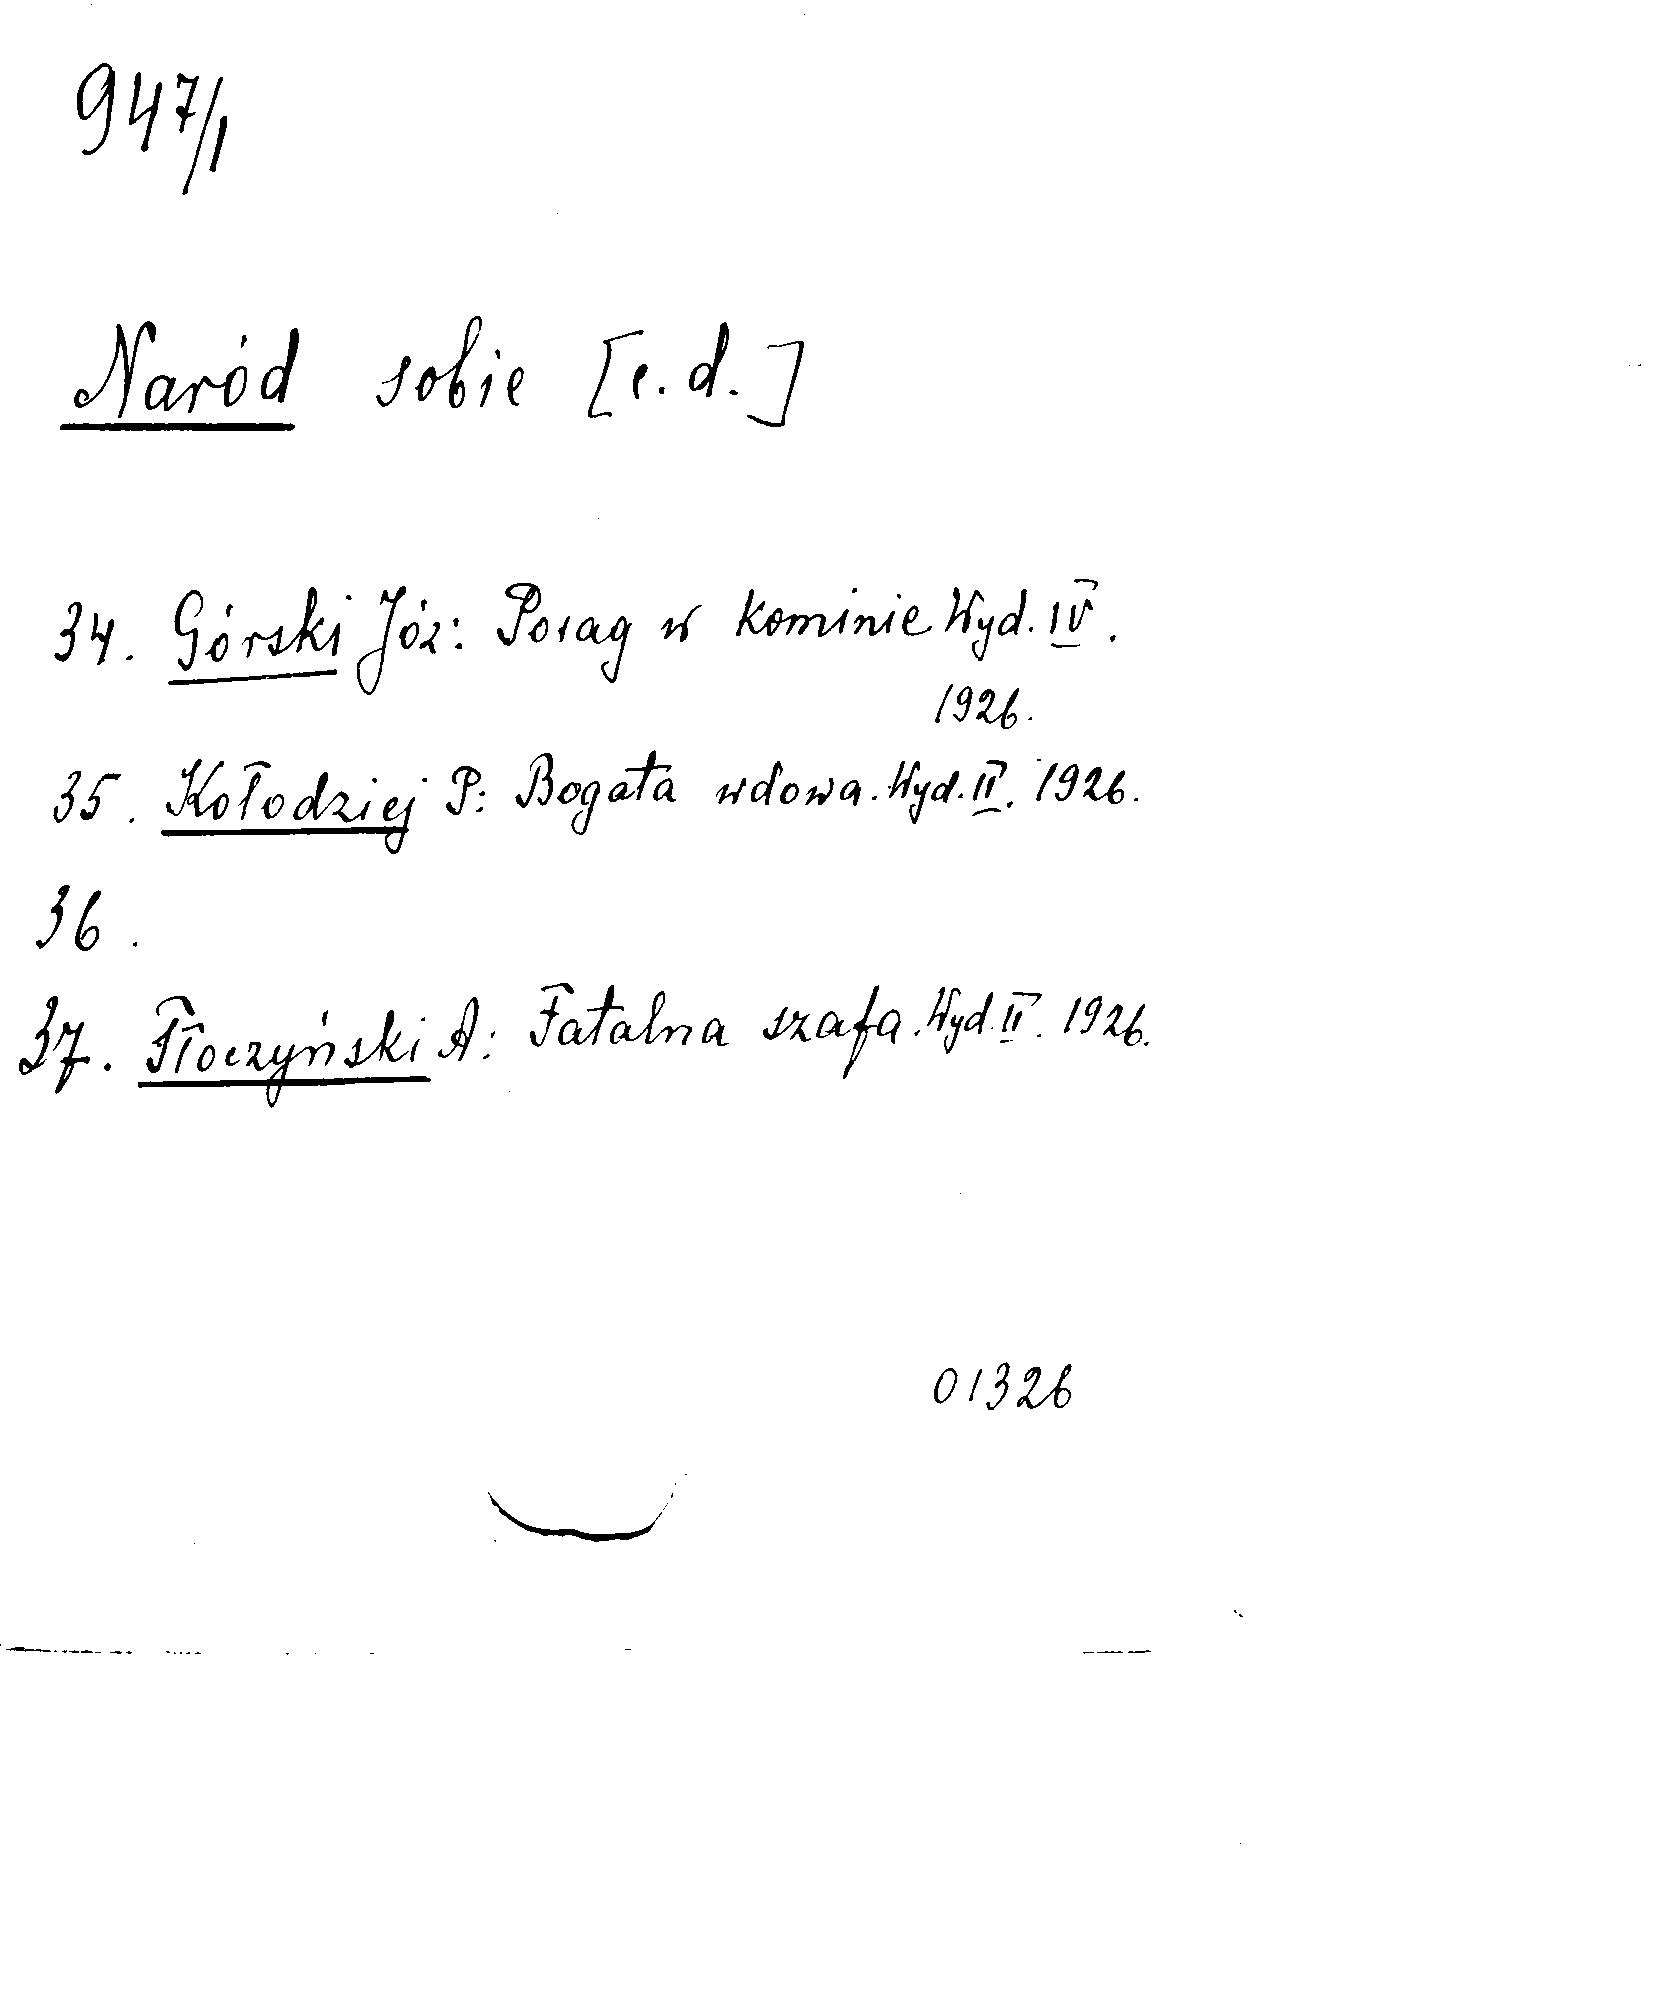 947/1
Naród sobie [c.d.]
34. Górski Józ: Posag w kominie Wyd. IV.
1926.
35. Kołodziej P: Bogata wdowa. Wyd. II. 1926.
36.
37. Tłoczyński A: Fatalna szafa. Wyd. II. 1926.
01326